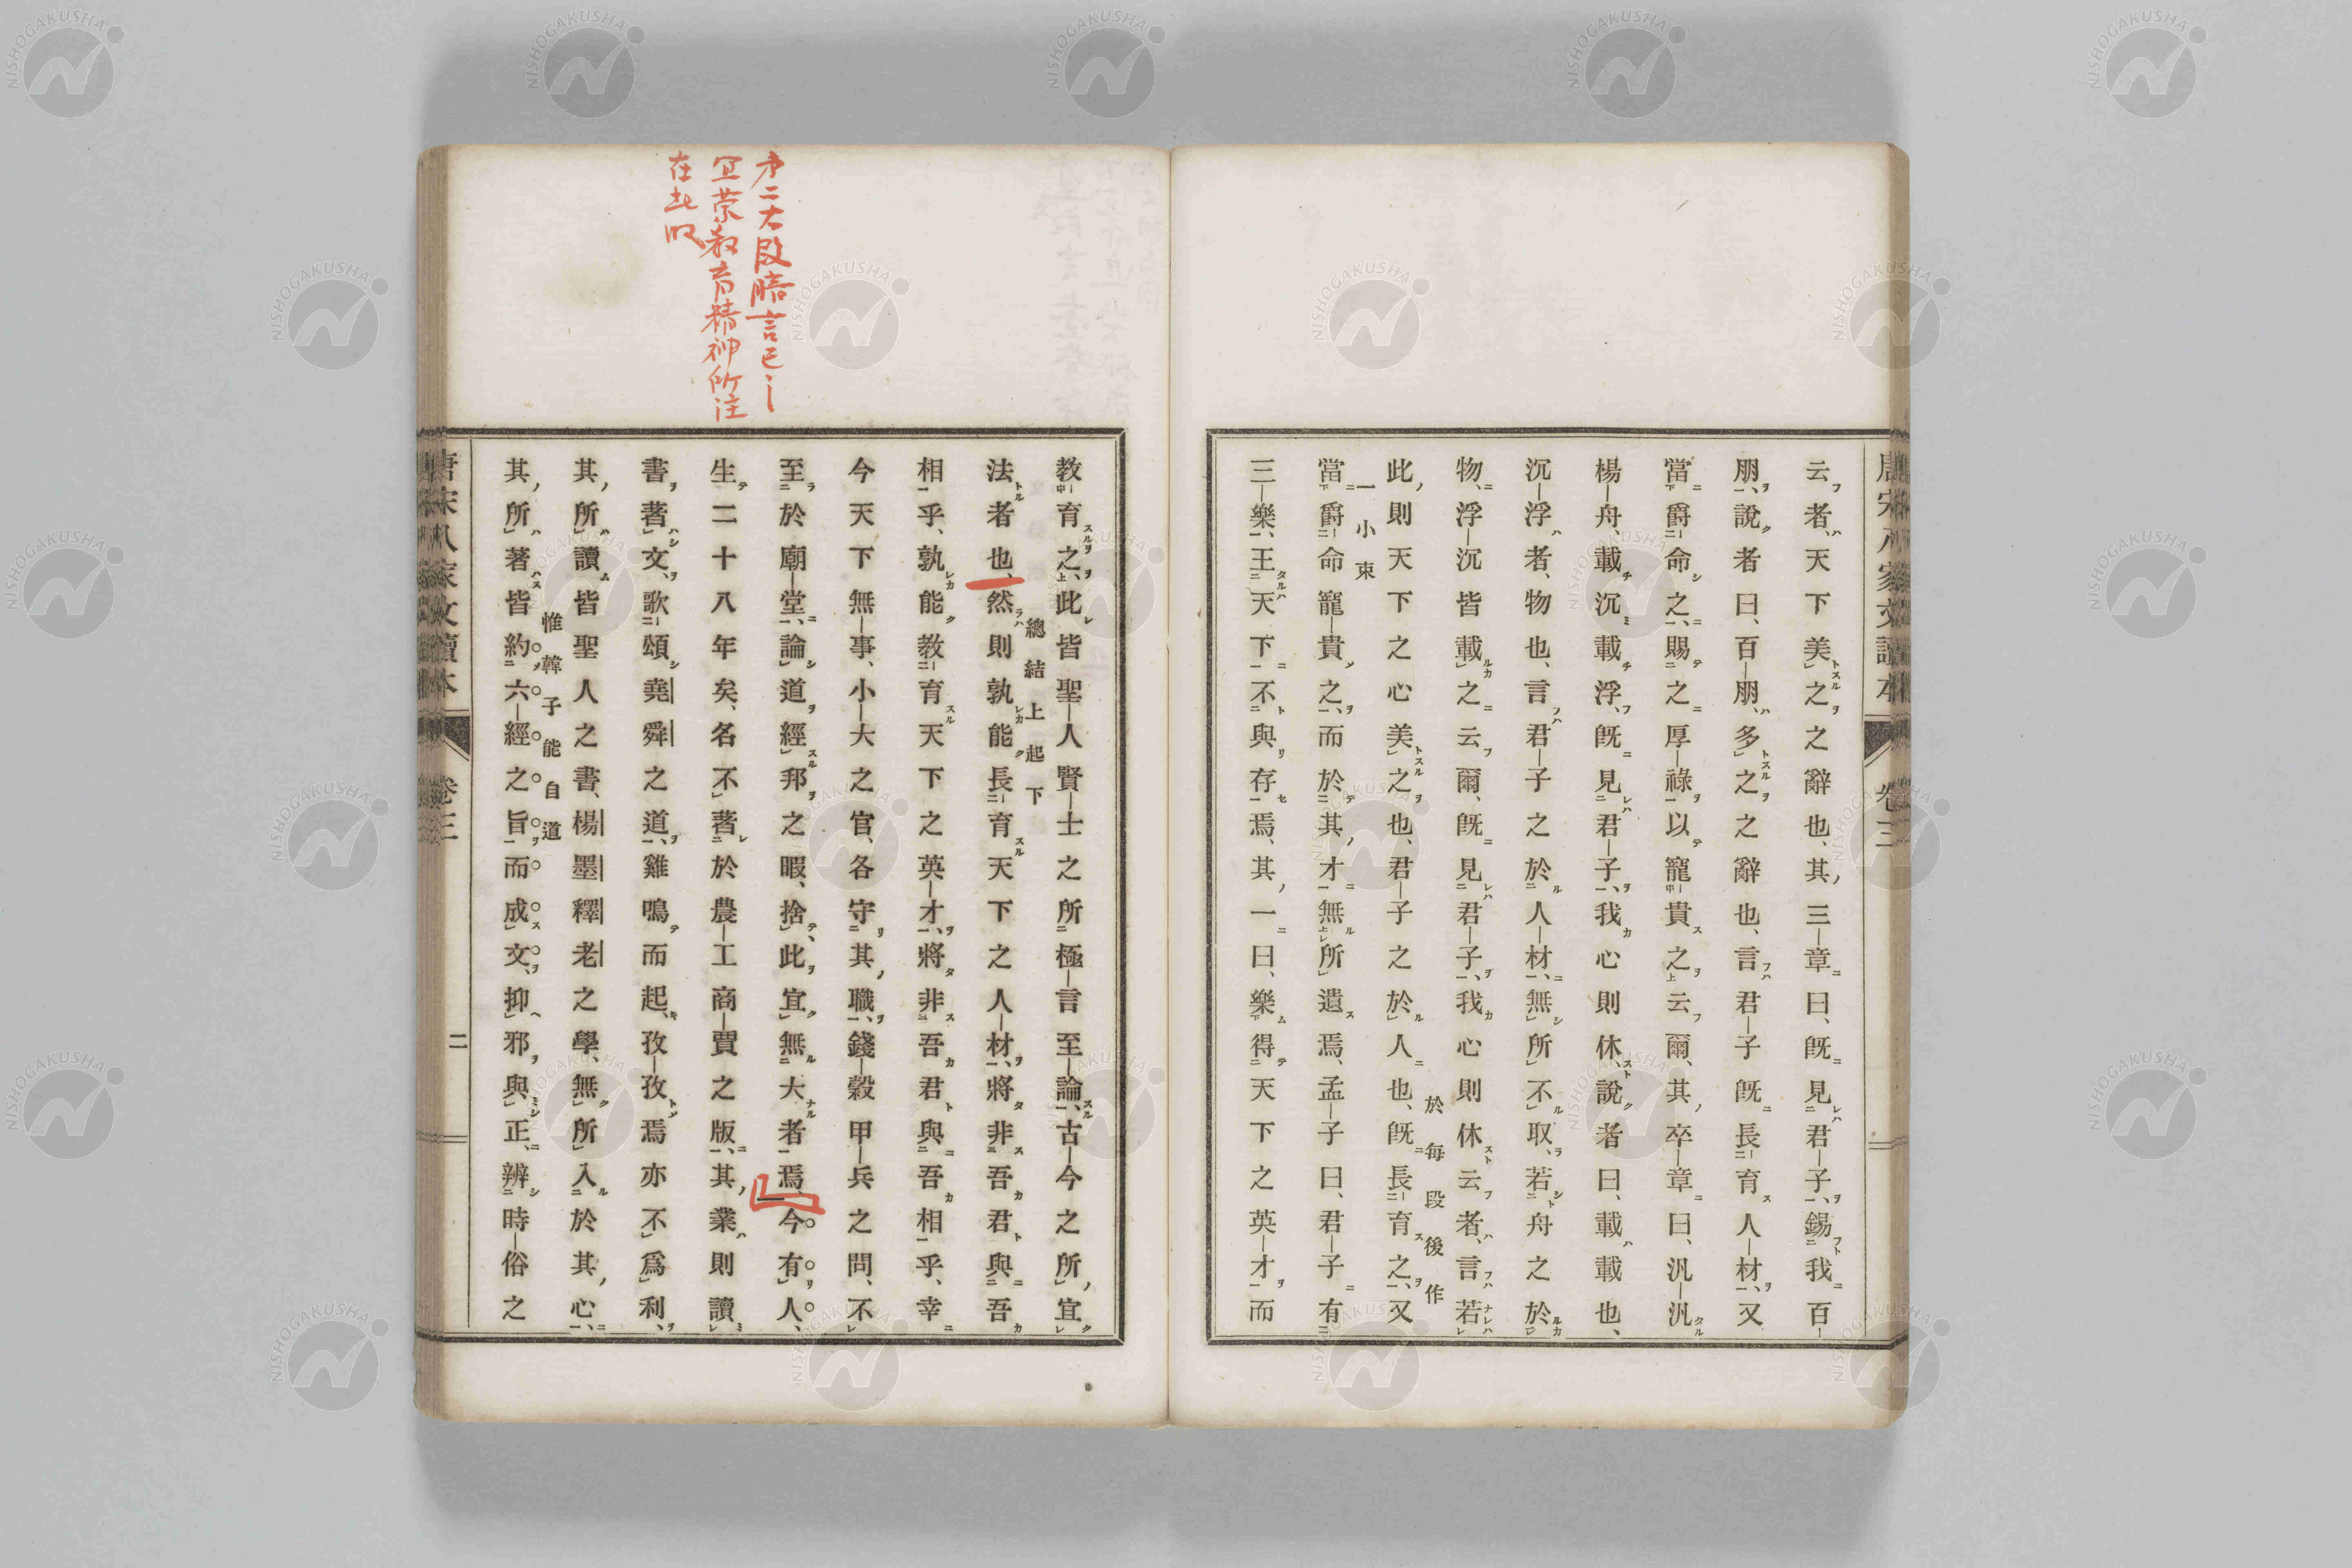 唐宋八家文讀本 卷三
云者、天下美之之辭也、其三章曰、既見君子、錫我百
朋、說者曰、百朋、多之之辭也、言君子既長育人材、又
當爵命之、賜之厚祿以寵貴之云爾、其卒章曰、汎汎
楊舟、載沉載浮、既見君子、我心則休、說者曰、載載也、
沉浮者、物也、言君子之於人材、無所不取、若舟之於
物、浮沉皆載之云爾、既見君子、我心則休云者、言若
於每段後作
此、則天下之心美之也、君子之於人也、既長育之、又
一小束
當爵命寵貴之、而於其才無所遺焉、孟子曰、君子有
三樂、王天下不與存焉、其一曰、樂得天下之英才而
教育之、此皆聖人賢士之所極言至論、古今之所宜
總結上起下
法者也、然則孰能長育天下之人材、將非吾君與吾
相乎、孰能教育天下之英才、將非吾君與吾相乎、幸
今天下無事、小大之官、各守其職、錢穀甲兵之問、不
至於廟堂、論道經邦之暇、捨此宜無大者焉、今有人、
生二十八年矣、名不著於農工商賈之版、其業則讀
書著文、歌頌堯舜之道、雞鳴而起、孜孜焉亦不爲利、
其所讀皆聖人之書、楊墨釋老之學、無所入於其心、
惟韓子能自道
其所著皆約六經之旨而成文、抑邪與正、辨時俗之
唐宋八家文讀本 卷三 二
㐧二大段
言已
宜榮教育精神所注
在此
NISHOGAKUSHA